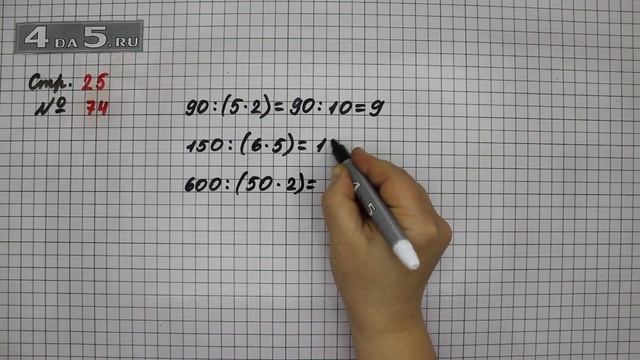 4 ДА 5.RU
Стр. 25
№ 74
90:(5·2)=90:10=9
150:(6·5)=1
600:(50·2)=
4 5